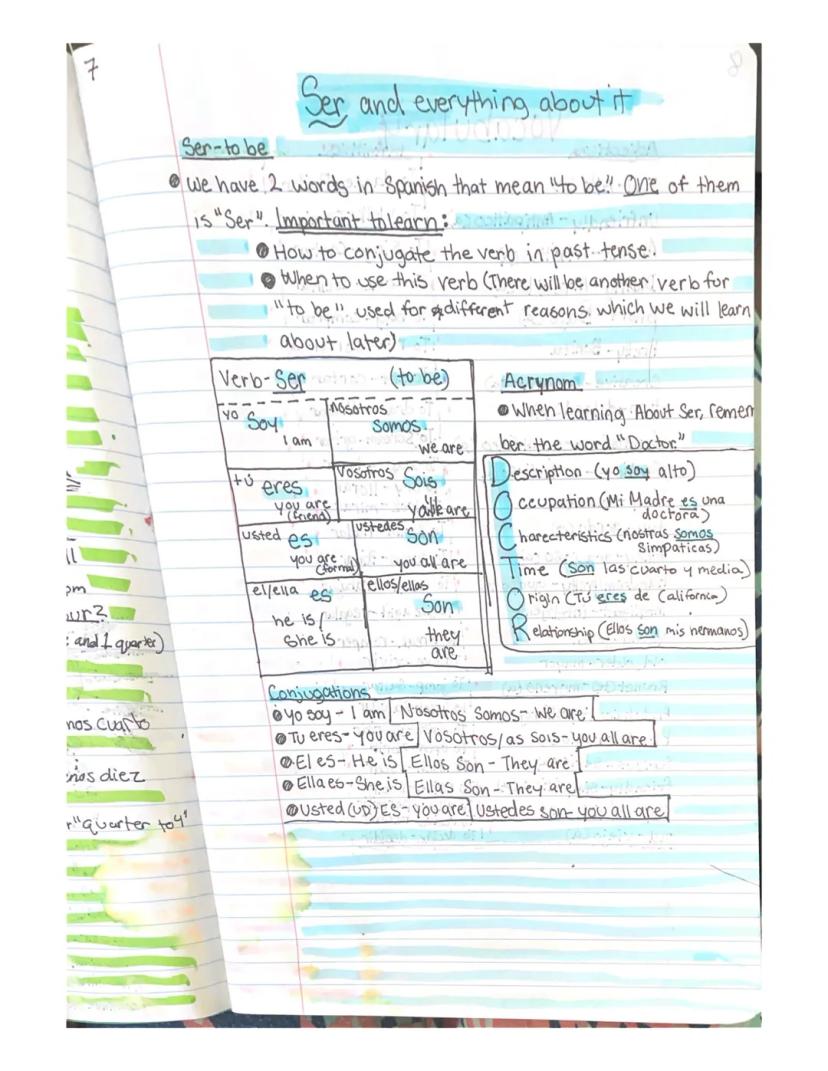 7
8
Ser and everything about it
Ser-to be
we have 2 words in Spanish that mean "to be." One of them
is "Ser". Important to learn:
How to conjugate the verb in past tense.
When to use this verb (There will be another verb for
"to be" used for different reasons, which we will learn
about later)
Verb-Ser (to be)
yo Soy
I am
Nosotros
Somos
we are
tú eres
you are
(friend)
Vosotros Sois
you all are
usted es
you are
(formal)
ustedes
Son
you all are
el/ella es
he is/
she is
ellos/ellas
Son
they
are
Acrynom
When learning About Ser, remem
ber the word "Doctor."
Description (yo soy alto)
Occupation (Mi Madre es una
doctora)
Charecteristics (nostras somos
simpaticas)
Time (Son las cuarto y media)
Origin (Tú eres de California)
Relationship (Ellos son mis hermanos)
Conjugations
yo soy - I am Nosotros Somos - we are
Tu eres - you are Vosotros/as sois - you all are
El es - He is Ellos Son - They are
Ella es - She is Ellas Son - They are
Usted (UD) ES - you are Ustedes son - you all are
pm
ur?
: and 1 quarter)
nos cuarto
nos diez
r "quarter to 4"